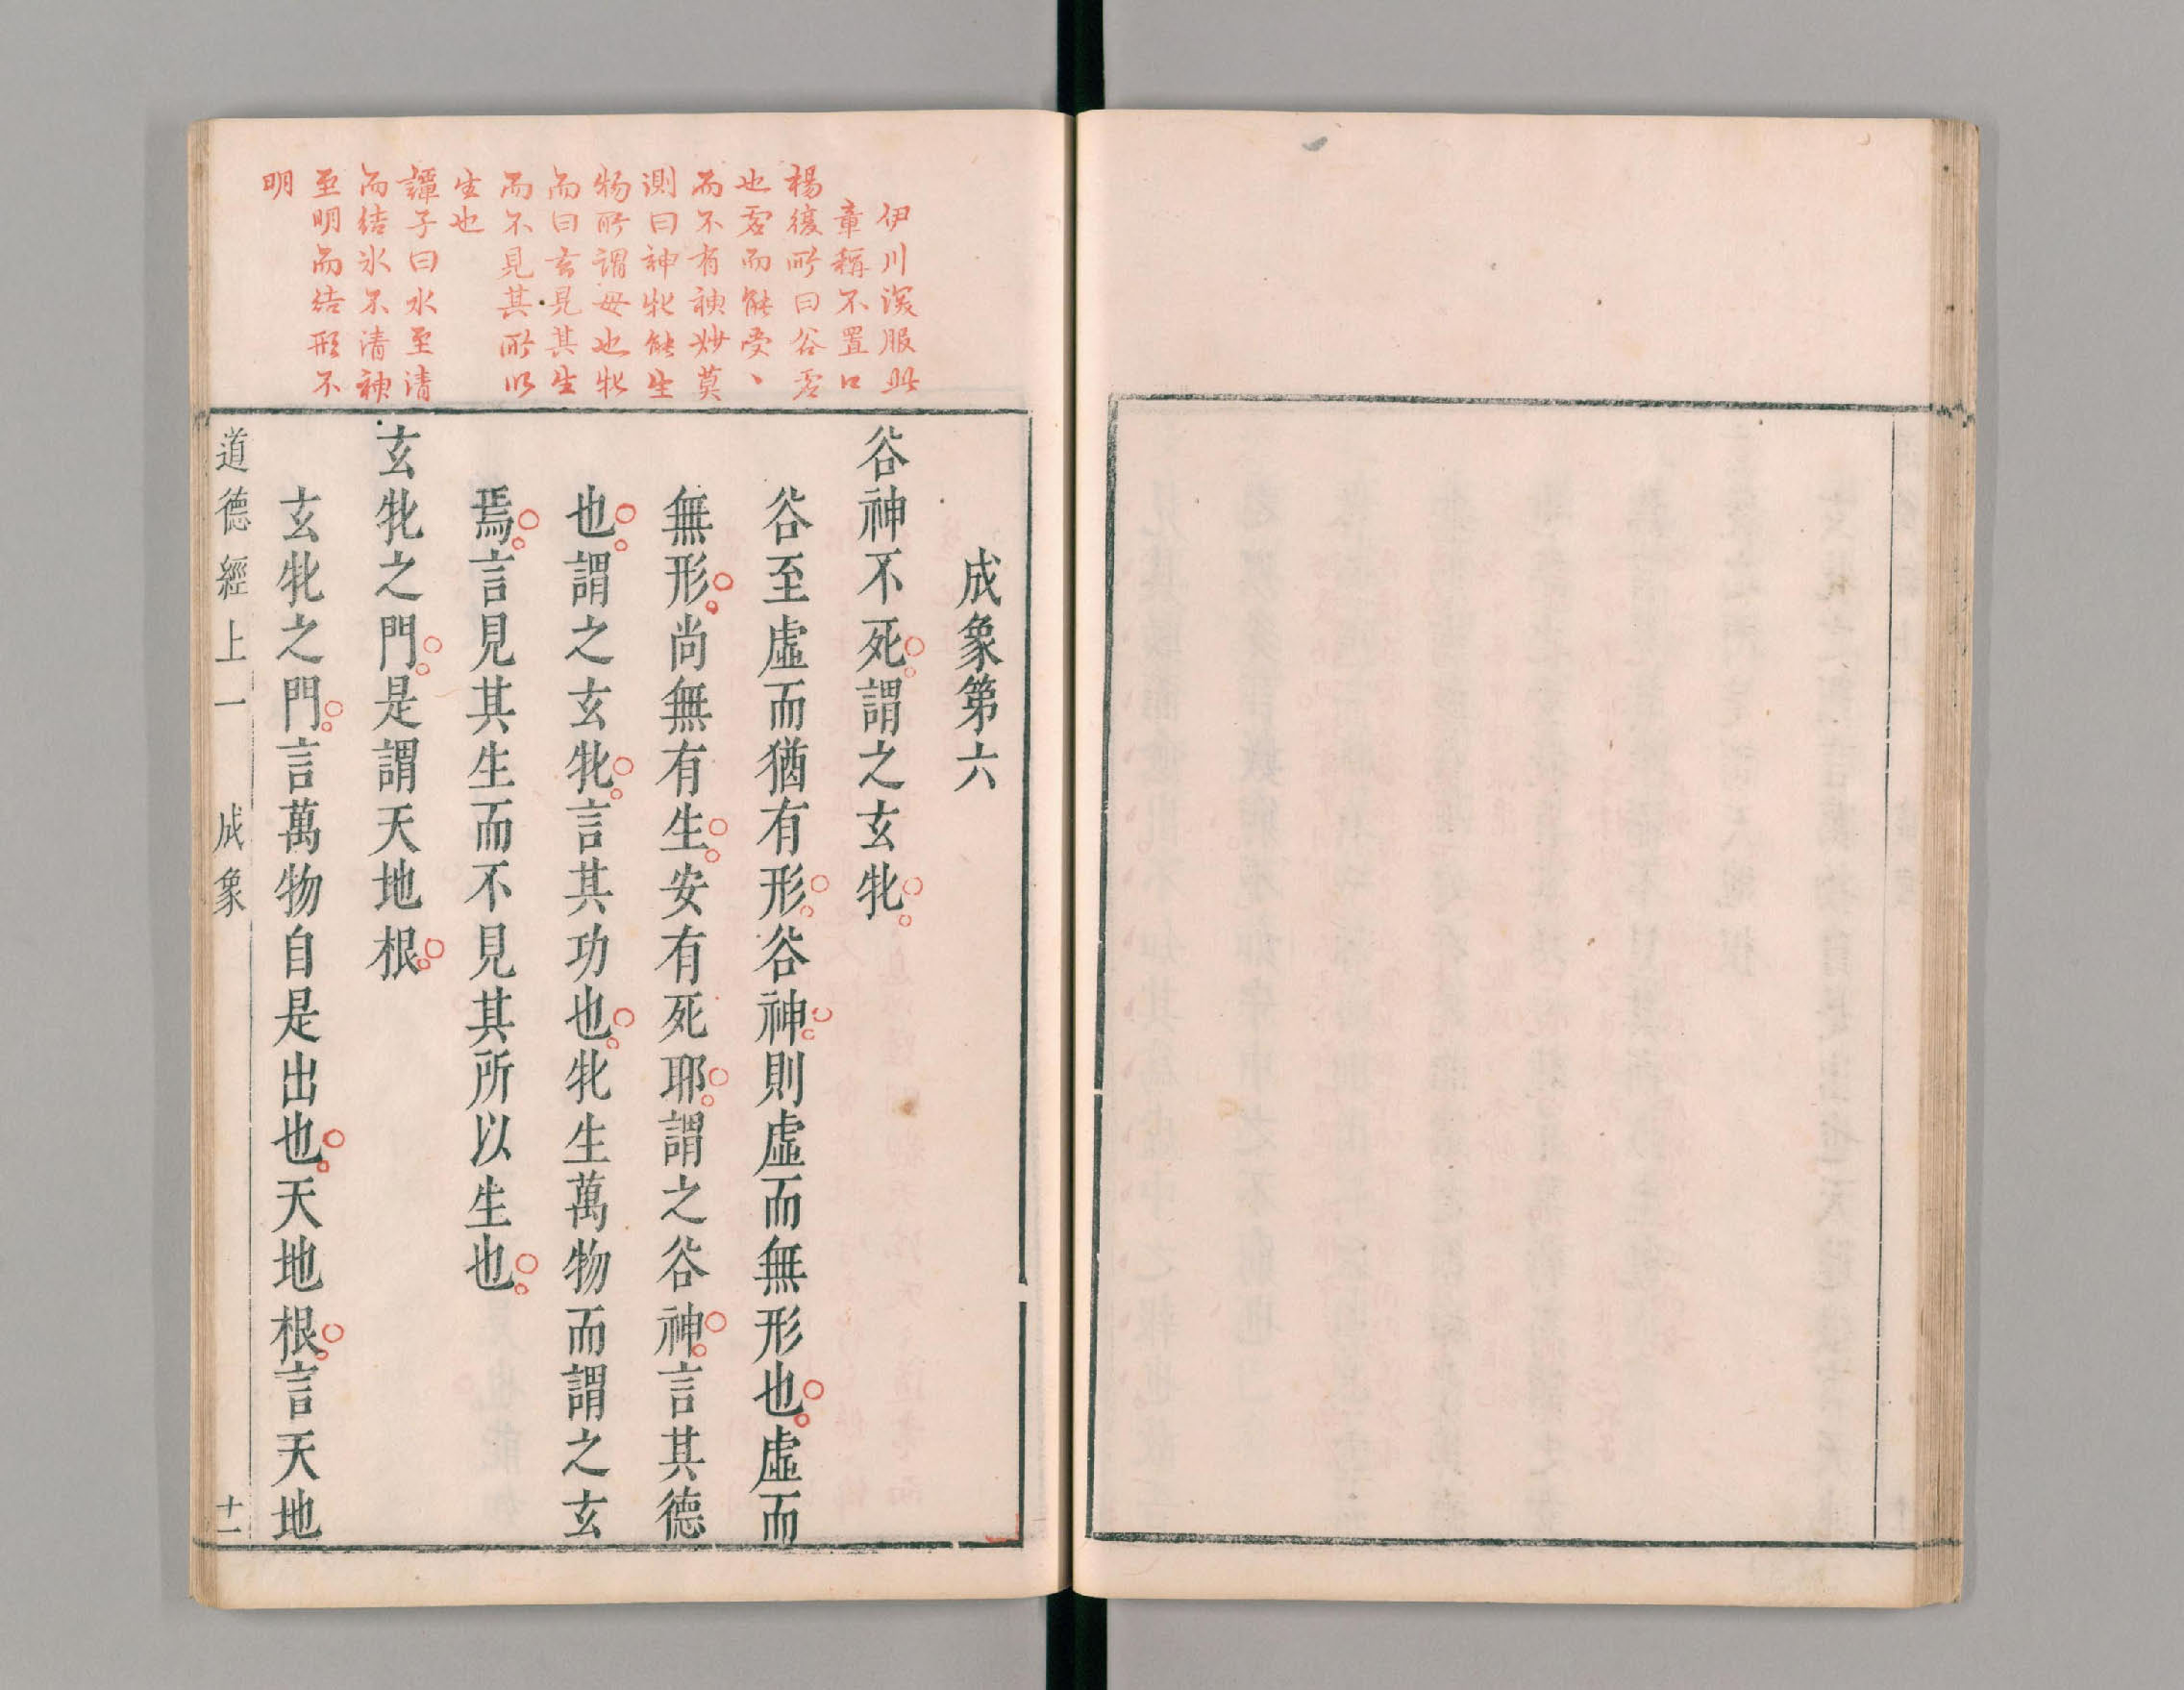 伊川深服此
章稱不置口
楊復所曰谷虛
也虛而能受、
而不有神妙莫
測曰神牝能生
物所謂母也牝
而曰玄見其生
而不見其所以
生也
譚子曰水至清
而結冰不清神
至明而結形不
明
成象第六
谷神不死謂之玄牝
谷至虛而猶有形谷神則虛而無形也虛而
無形尚無有生安有死耶謂之谷神言其德
也謂之玄牝言其功也牝生萬物而謂之玄
焉言見其生而不見其所以生也
玄牝之門是謂天地根
玄牝之門言萬物自是出也天地根言天地
道德經上一 成象 十一